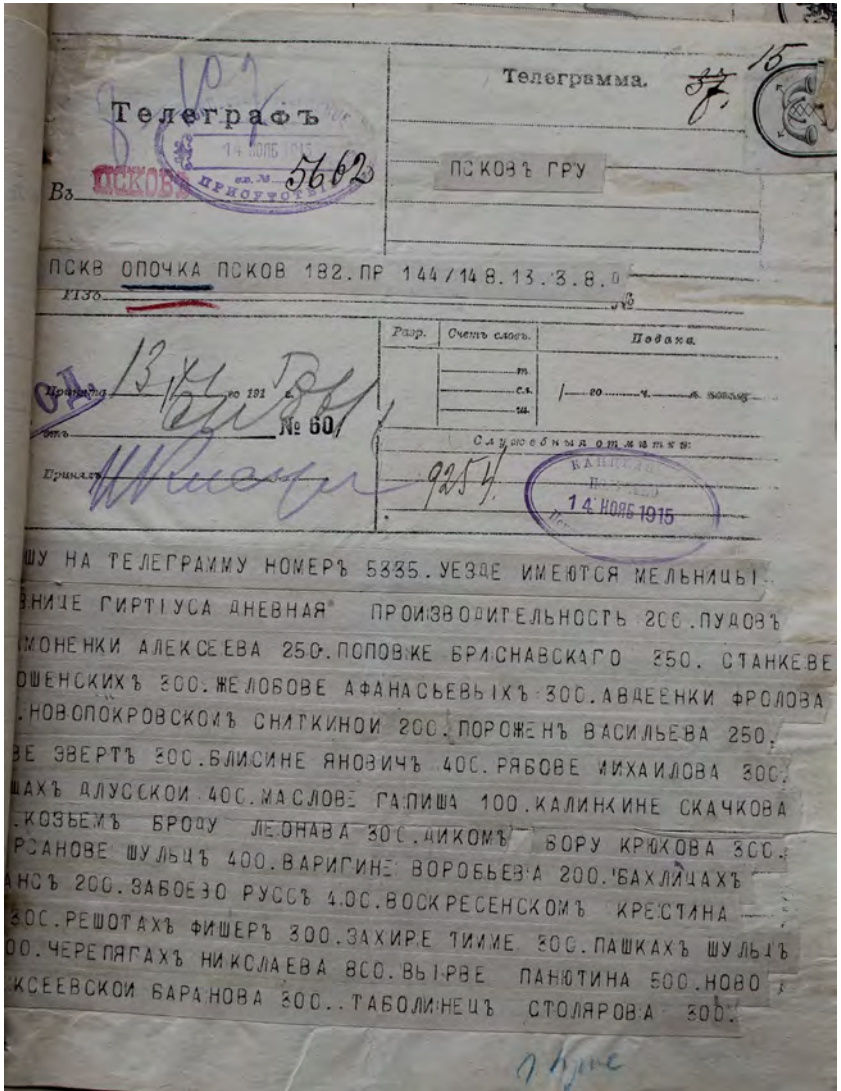 15
37.
Телеграмма.
Телеграфъ
14 НОЯБ 1915
вх. №
5662
Въ ПСКОВЪ
ПРИСУТСТВ
ПСКОВЪ ГРУ
ПСКВ ОПОЧКА ПСКОВ 182.ПР 144/148.13.3.8.0
ИЗЪ №
Разр. Счетъ словъ. Подана.
Принята 13/XI го 191 г.
т.
сл.
ш.
го ч. м.
№ 60/
Служебныя отмѣтки:
Принялъ
9254.
14 НОЯБ 1915
ШУ НА ТЕЛЕГРАММУ НОМЕРЪ 5335.УЕЗДЕ ИМЕЮТСЯ МЕЛЬНИЦЫ
ВНИЦЕ ГИРТІУСА ДНЕВНАЯ ПРОИЗВОДИТЕЛЬНОСТЬ 200.ПУДОВЪ
МОНЕНКИ АЛЕКСЕЕВА 250.ПОПОВКЕ БРИСНАВСКАГО 350. СТАНКЕВЕ
ОШЕНСКИХЪ 300.ЖЕЛОБОВЕ АФАНАСЬЕВЫХЪ 300.АВДЕЕНКИ ФРОЛОВА
.НОВОПОКРОВСКОМЪ СНИТКИНОИ 200.ПОРОЖЕНЪ ВАСИЛЬЕВА 250.
ВЕ ЭВЕРТЪ 300.БЛИСИНЕ ЯНОВИЧЪ 400.РЯБОВЕ МИХАИЛОВА 300.
ШАХЪ ДЛУССКОЙ 400.МАСЛОВЕ ГАПИША 100.КАЛИНКИНЕ СКАЧКОВА
.КОЗЬЕМЪ БРОДУ ЛЕОНАВА 300.ДИКОМЪ БОРУ КРЮКОВА 300.
РСАНОВЕ ШУЛЬЦЪ 400.ВАРИГИНЕ ВОРОБЬЕВА 200.БАХЛИЦАХЪ
АНСЪ 200.ЗАБОЕВО РУССЪ 400.ВОСКРЕСЕНСКОМЪ КРЕСТИНА
300.РЕШОТАХЪ ФИШЕРЪ 300.ЗАХИРЕ ТИММЕ 300.ПАШКАХЪ ШУЛЬЦЪ
00.ЧЕРЕПЯГАХЪ НИКОЛАЕВА 800.ВЫРВЕ ПАНЮТИНА 500.НОВО
КСЕЕВСКОЙ БАРАНОВА 300..ТАБОЛИНЕЦЪ СТОЛЯРОВА 300.